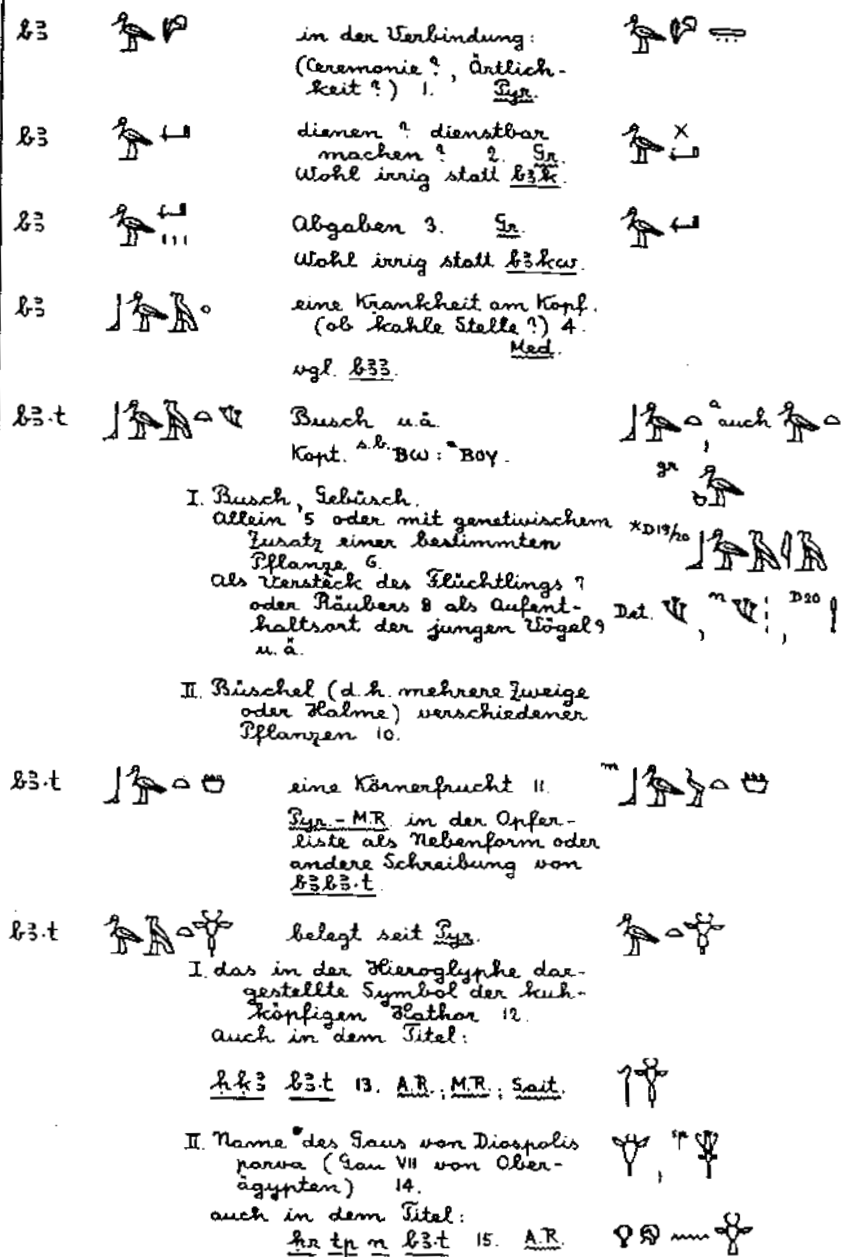 bꜣ in der Verbindung:
(Ceremonie?, Örtlich-
keit?) 1. Pyr.
bꜣ dienen? dienstbar
machen? 2. Gr.
Wohl irrig statt bꜣk.
bꜣ Abgaben 3. Gr.
Wohl irrig statt bꜣkw.
bꜣ eine Krankheit am Kopf.
(ob kahle Stelle?) 4.
Med.
vgl. bꜣꜣ.
bꜣ.t Busch u.ä. auch
Kopt. s.b. ⲃⲱ : ⲃⲟⲩ.
gr
I. Busch, Gebüsch.
Allein 5 oder mit genetivischem *D19/20
Zusatz einer bestimmten
Pflanze 6.
Als Versteck des Flüchtlings 7
oder Räubers 8 als Aufent- Det. , n , D20
haltsort der jungen Vögel 9
u.ä.
II. Büschel (d.h. mehrere Zweige
oder Halme) verschiedener
Pflanzen 10.
bꜣ.t eine Körnerfrucht 11. m
Pyr. - M.R. in der Opfer-
liste als Nebenform oder
andere Schreibung von
bꜣbꜣ.t.
bꜣ.t belegt seit Pyr.
I. das in der Hieroglyphe dar-
gestellte Symbol der kuh-
köpfigen Hathor 12.
auch in dem Titel:
ḥḳꜣ bꜣ.t 13. A.R.; M.R.; Sait.
II. Name des Gaus von Diospolis , sp
parva (Gau VII von Ober-
ägypten) 14.
auch in dem Titel:
ḥr tp n bꜣ.t 15. A.R.